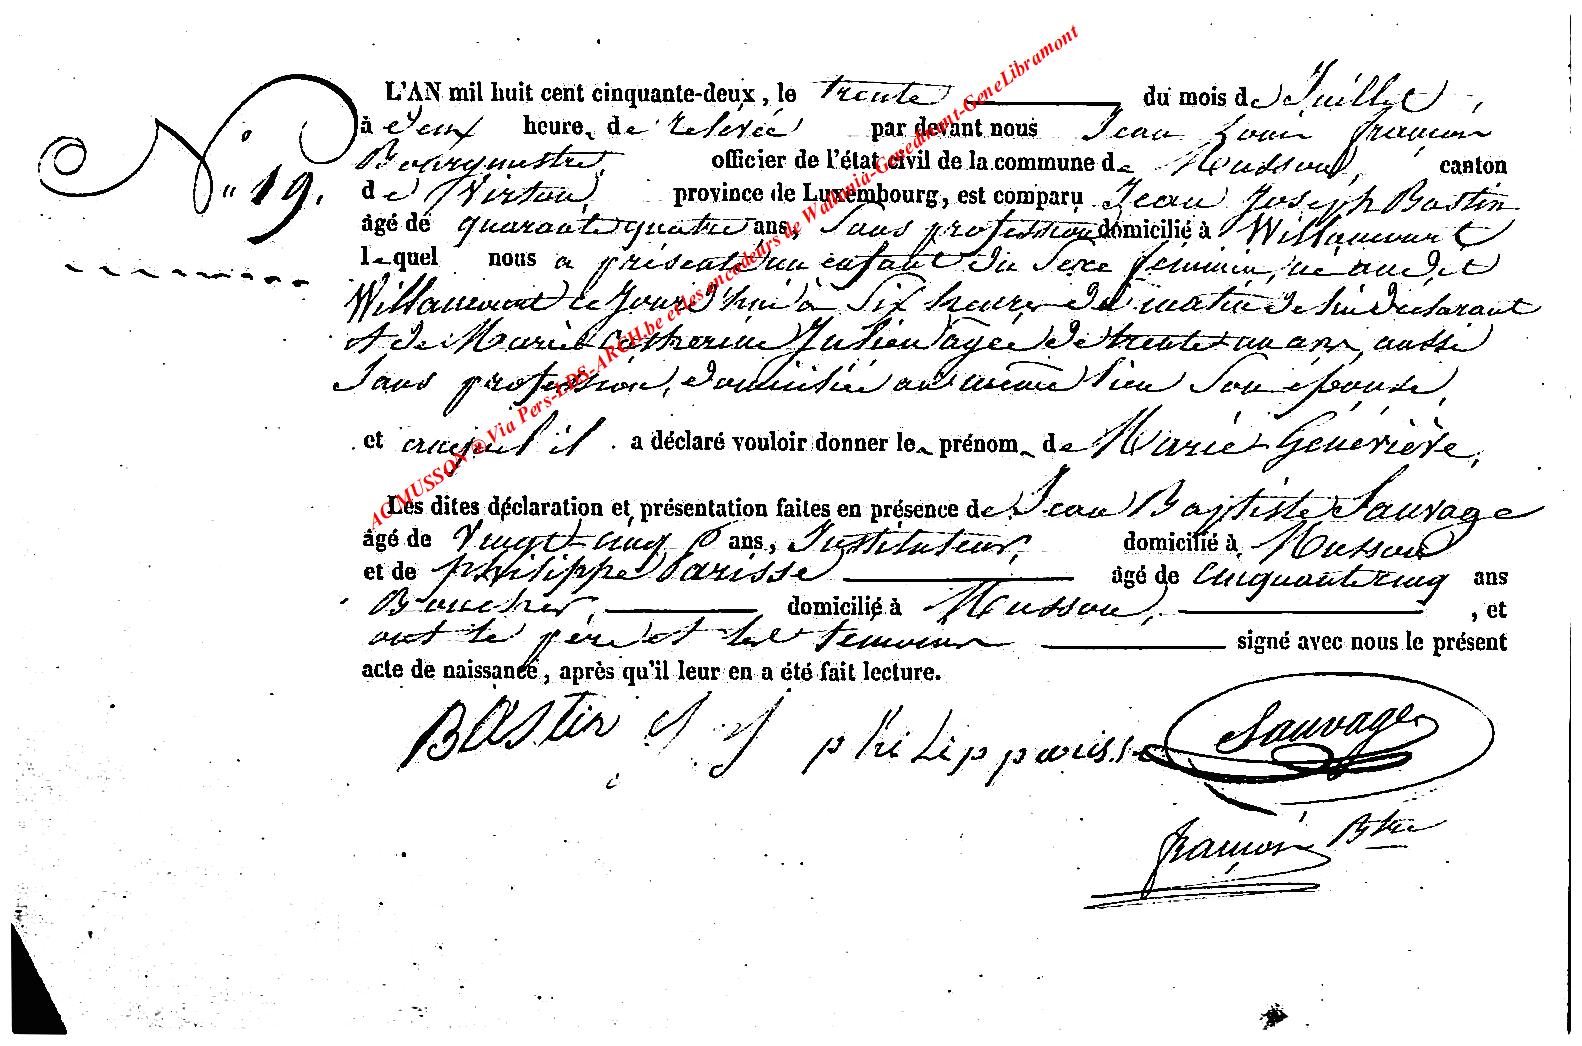 N° 19.
L'AN mil huit cent cinquante-deux, le trente du mois de Juillet,
à deux heure de relevée par devant nous Jean Louis François
Bourgmestre, officier de l'état civil de la commune de Musson, canton
de Virton, province de Luxembourg, est comparu Jean Joseph Bastin
âgé de quarante quatre ans, Sans profession domicilié à Willancourt
lequel nous a présenté un enfant du Sexe féminin, né audit
Willancourt ce Jourd'hui à Six heures du matin de lui déclarant
et de Marie Catherine Julien agée de trente un ans, aussi
Sans profession, domiciliée au même lieu Son épouse,
et auquel il a déclaré vouloir donner le prénom de Marie Geneviève,
Les dites déclaration et présentation faites en présence de Jean Baptiste Sauvage
âgé de Vingt cinq ans, Instituteur, domicilié à Musson
et de Philippe Parisse âgé de cinquante cinq ans
Boucher, domicilié à Musson, , et
ont le père et les témoins signé avec nous le présent
acte de naissance, après qu'il leur en a été fait lecture.
Bastin J J philipp parisse Sauvage
François Btre
AC MUSSON @ Via Pers-LDS-ARCH.be et les encodeurs de Wallonia-Genedinant-GeneLibramont